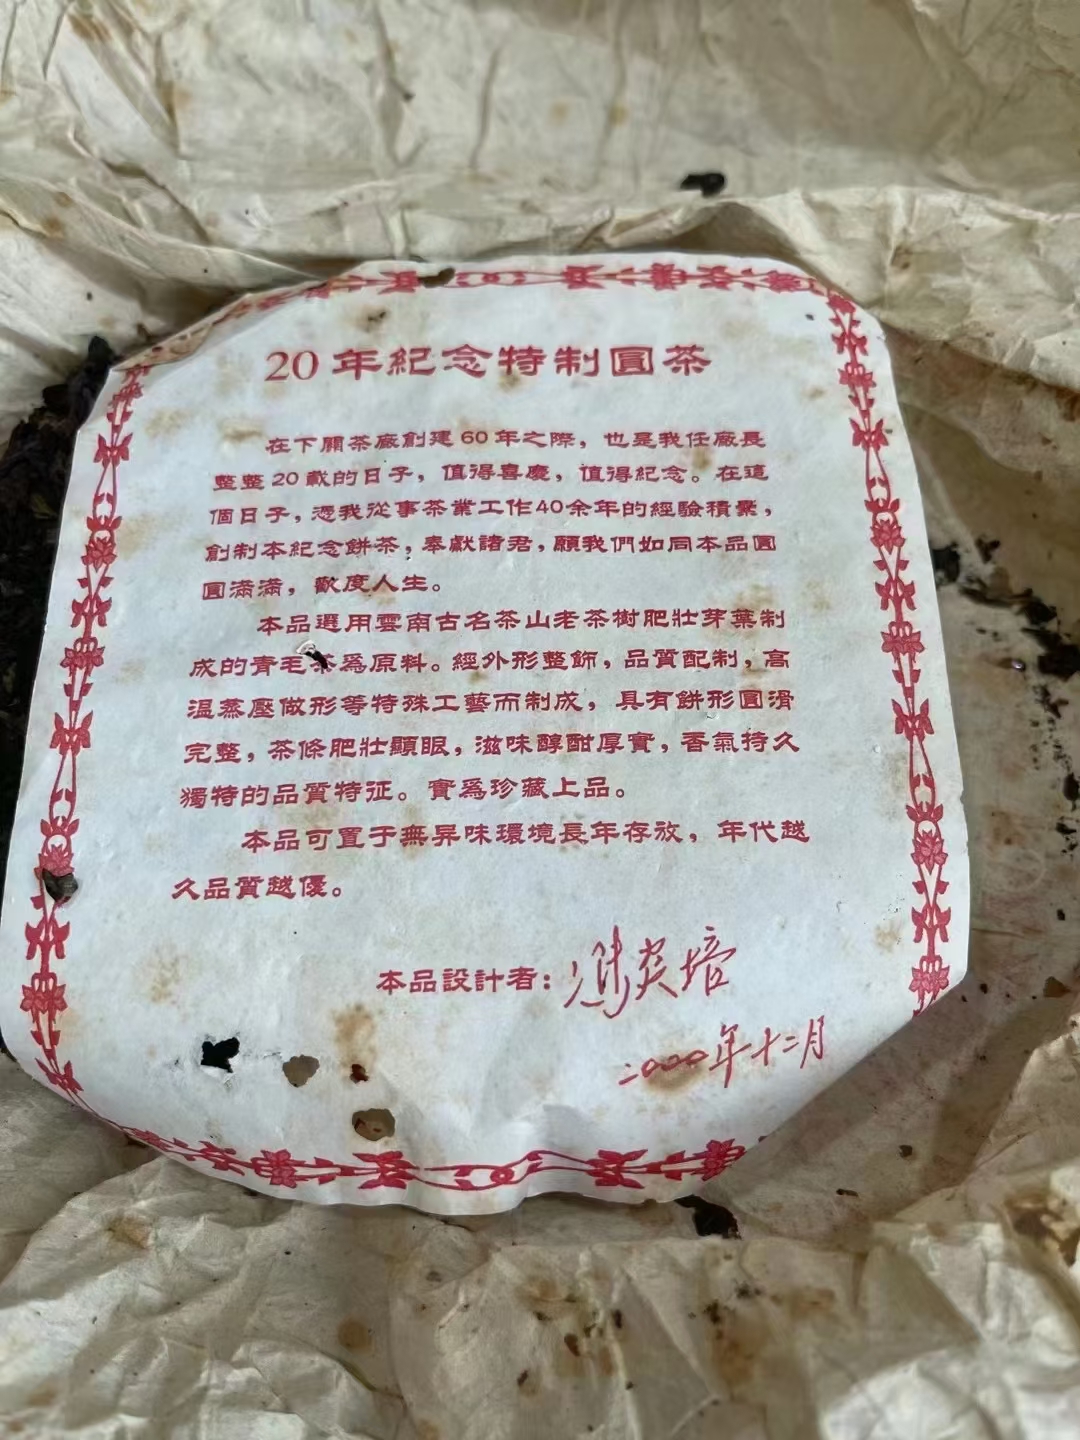 20年紀念特制圓茶
在下關茶廠創建60年之際，也是我任廠長
整整20載的日子，值得喜慶，值得紀念。在這
個日子，憑我從事茶業工作40余年的經驗積纍，
創制本紀念餅茶，奉獻諸君，願我們如同本品圓
圓滿滿，歡度人生。
本品選用雲南古名茶山老茶樹肥壯芽葉制
成的青毛茶爲原料。經外形整飾，品質配制，高
温蒸壓做形等特殊工藝而制成，具有餅形圓滑
完整，茶條肥壯顯眼，滋味醇酣厚實，香氣持久
獨特的品質特征。實爲珍藏上品。
本品可置于無异味環境長年存放，年代越
久品質越優。
本品設計者：馮炎培
二000年十二月